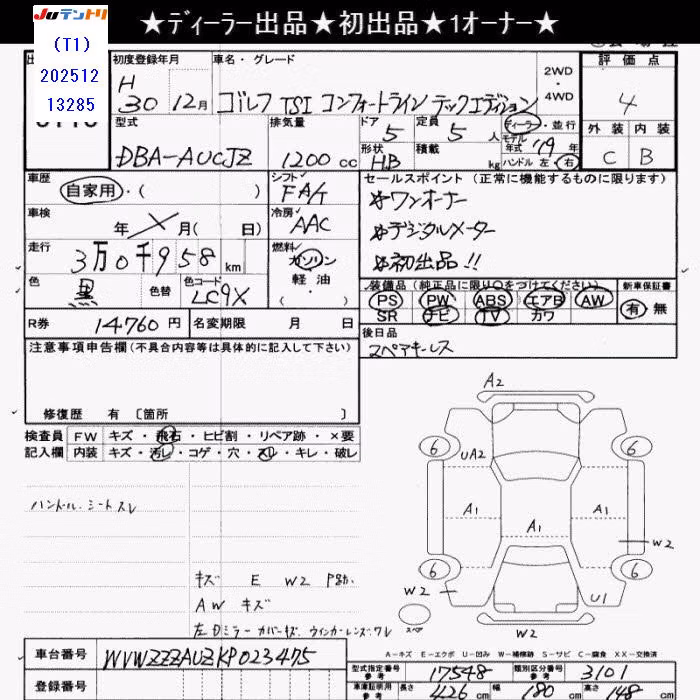 JUテントリ ★ディーラー出品★初出品★1オーナー★
(T1)
202512
13285
初度登録年月 車名・グレード 2WD・4WD 評価点
H 30 12月 ゴルフ TSI コンフォートライン テックエディション 4
外装 内装
C B
型式 排気量 ドア 定員 ディーラー・並行
DBA-AUCJZ 1200 cc 5 5 人 モデル年式 '19 年
形状 積載 kg ハンドル 左・右
HB
車歴 シフト セールスポイント (正常に機能するものに限ります)
自家用・( ) FA/T ☆ワンオーナー
車検 冷房 ☆デジタルメーター
年 月( 日) AAC ☆初出品!!
走行 燃料
3万0千958 km ガソリン
軽油
・( )
色 色替 色コード
黒 LC9X
装備品 (純正品に限り○をつけてください) 新車保証書
PS PW ABS エアB AW 有 無
SR ナビ TV カワ
R券 14760 円 名変期限 月 日
後日品
スペアキーレス
注意事項申告欄 (不具合内容等は具体的に記入して下さい)
修復歴 有 〔箇所 〕
検査員 FW キズ・飛石・ヒビ割・リペア跡・×要
記入欄 内装 キズ・汚レ・コゲ・穴・スレ・キレ・破レ
ハンドル.シートスレ
キズ E W2 P多め
AW キズ
左Dミラー カバーキズ.ウインカーレンズワレ
A2
6 6
UA2
A1 A1 A1
W2
6 6
W2 U1
スペア
W2
A-キズ E-エクボ U-凹み W-補修跡 S-サビ C-腐食 XX-交換済
車台番号 WVWZZZAUZKP023475
登録番号
型式指定番号 参考 17548 類別区分番号 参考 3101
車庫証明用 参考 長さ 426 cm 幅 180 cm 高さ 148 cm